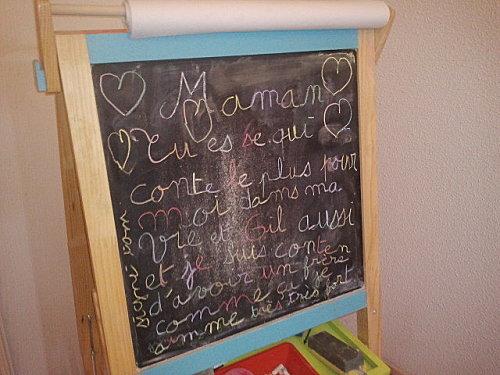 Maman
Tu es se qui
conte le plus pour
moi dams ma
vie et Gil aussi
et je suis conten
d'avoir un frère
comme ça je
aimme très très fort